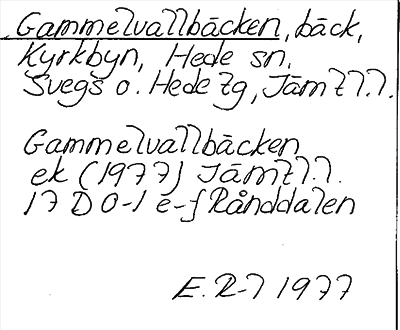 Gammelvallbäcken, bäck,
Kyrkbyn, Hede sn.
Svegs o. Hede tg, Jämtl.l.
Gammelvallbäcken
ek (1977) Jämtl.l.
17 D 0-1 e-f Rånddalen
E. R-7 1977